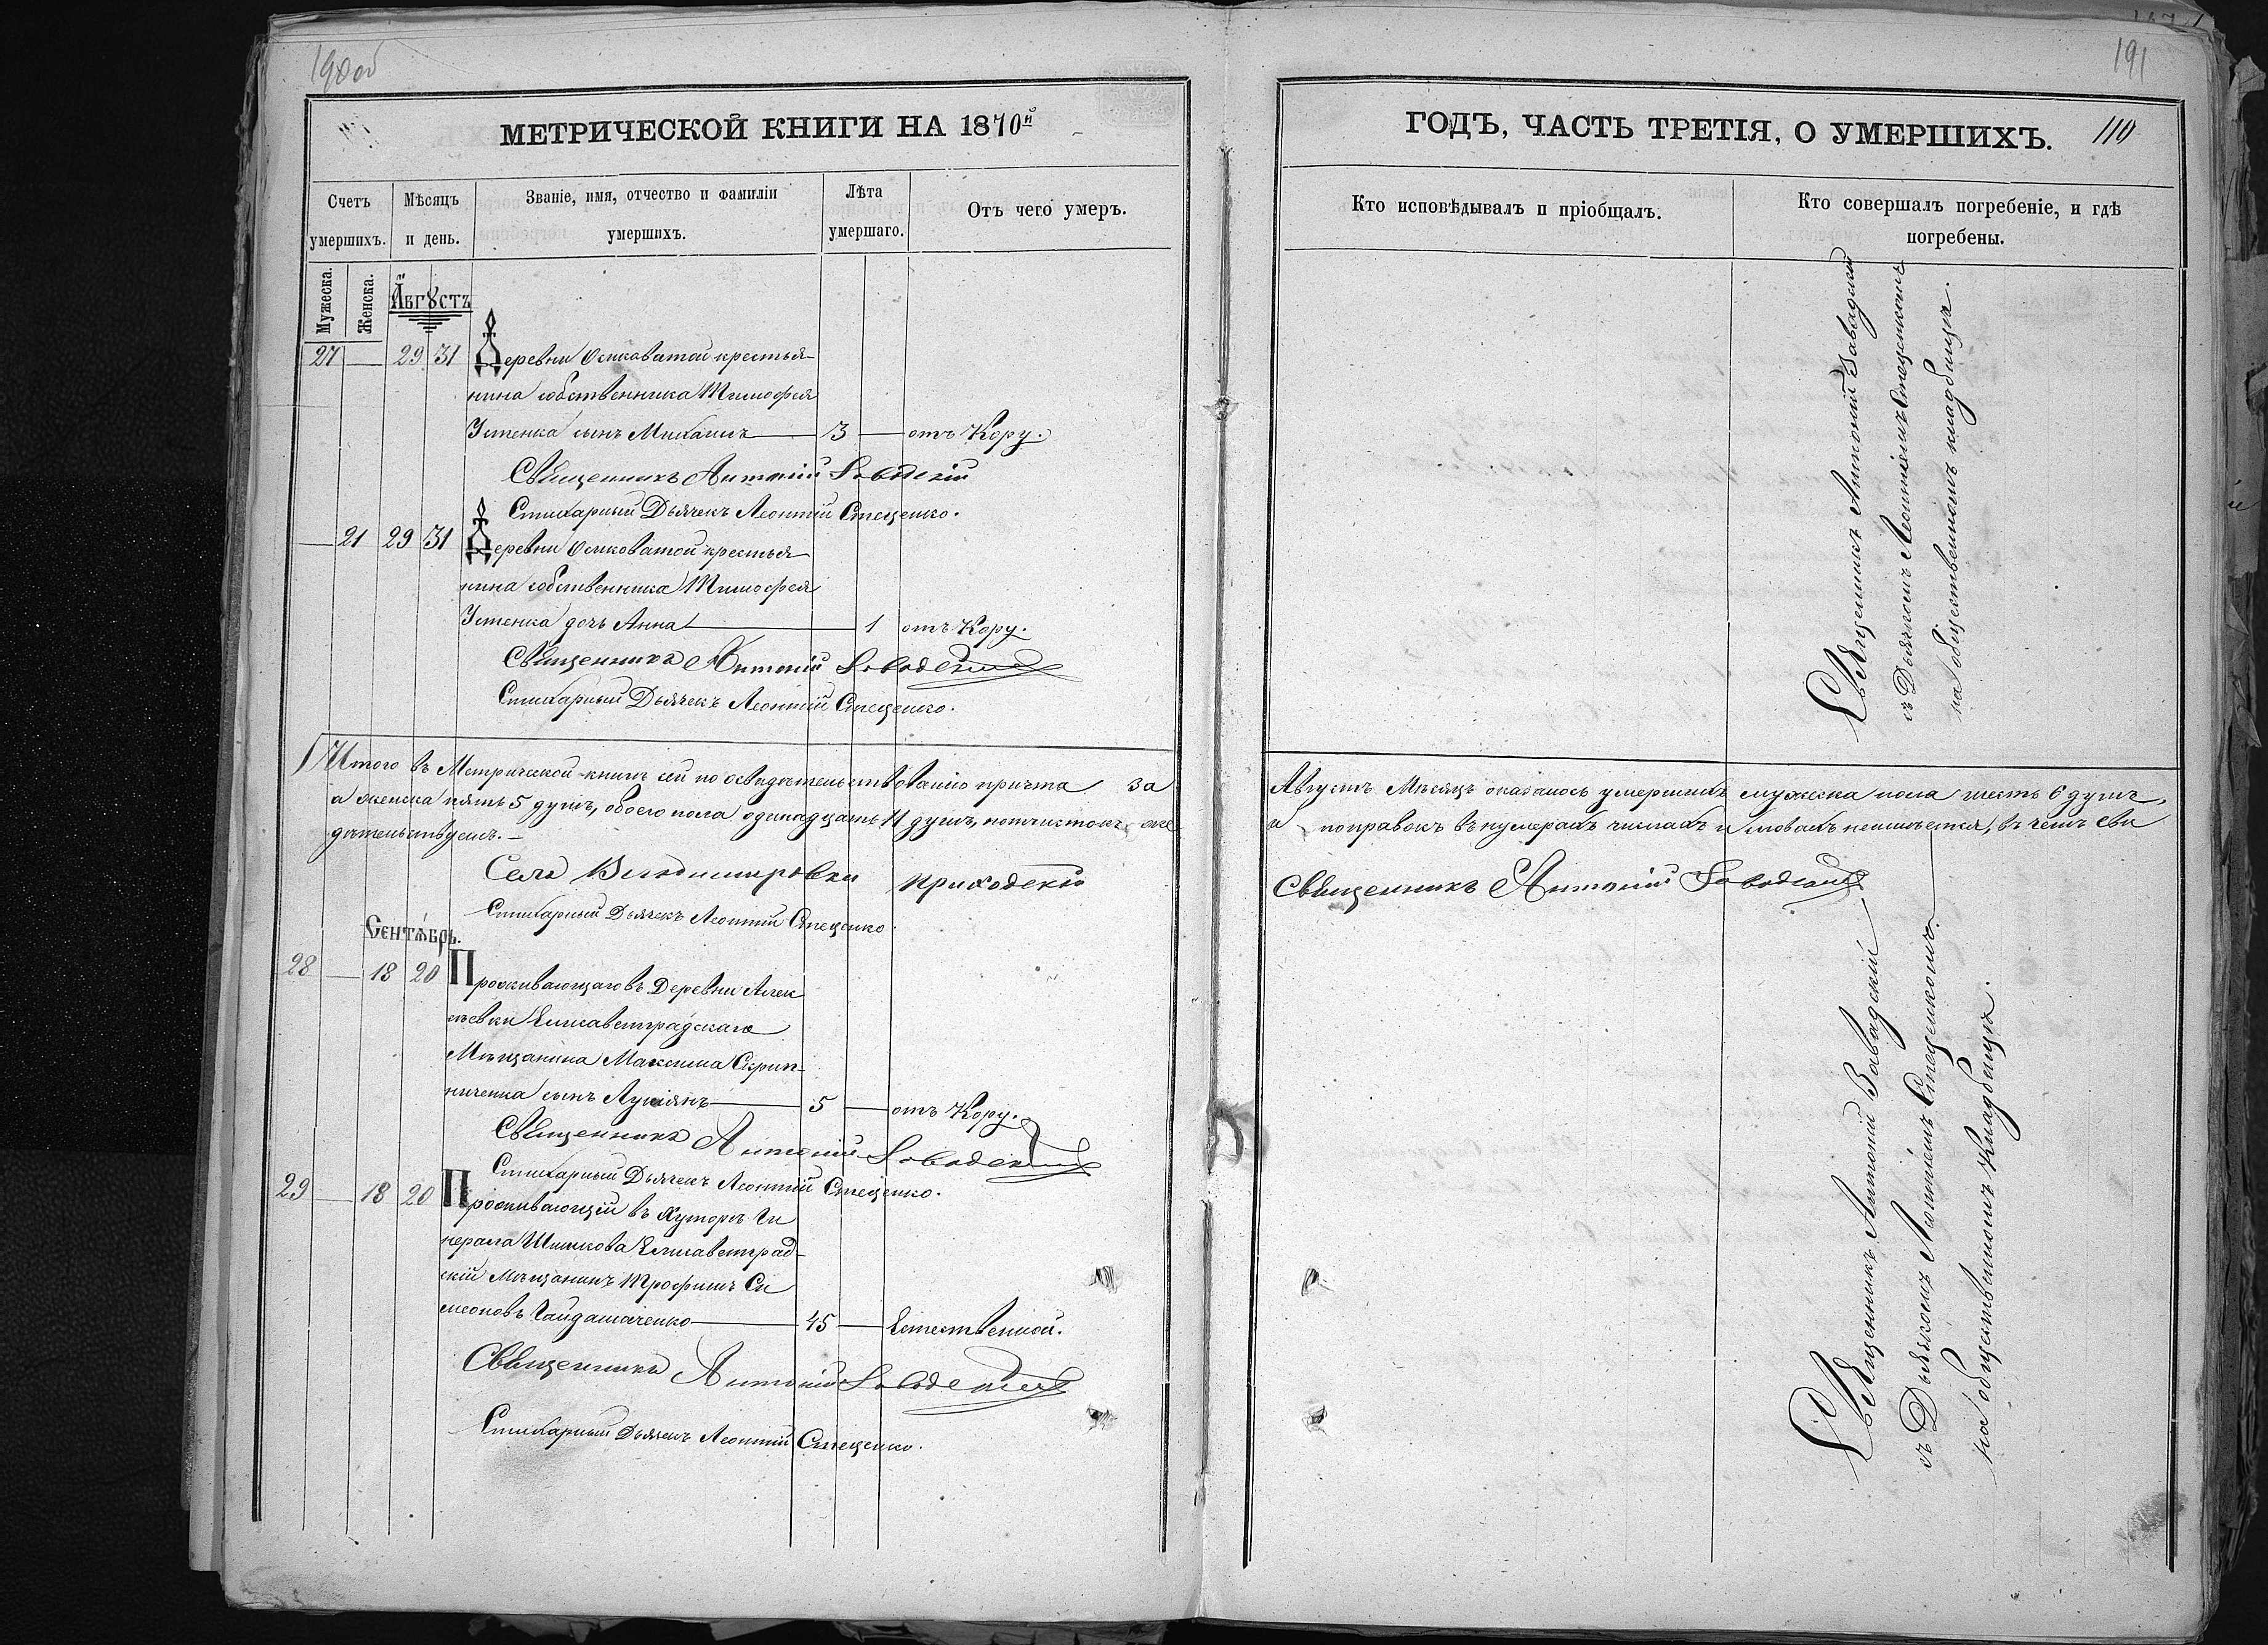 190об
МЕТРИЧЕСКОЙ КНИГИ НА 1870й
Счетъ умершихъ.
Мѣсяцъ и день.
Званіе, имя, отчество и фамиліи умершихъ.
Лѣта умершаго.
Отъ чего умеръ.
Мужеска.
Женска.
Августъ
27 — 29 31 Деревни Осиковатой крестья-
нина собственника Тимофея
Устенка сынъ Михаилъ — 3 — отъ Кору.
Священникъ Антоній Заводскій
Стихарный Дьячекъ Леонтій Стеценко.
— 21 29 31 Деревни Осиковатой крестья-
нина собственника Тимофея
Устенка дочь Анна — 1 отъ Кору.
Священникъ Антоній Заводскій
Стихарный Дьячекъ Леонтій Стеценко.
Итого въ Метрической книгѣ сей по освидѣтельствованію причта за
а женска пять 5 душъ, обоего пола одинадцать 11 душъ, подчистокъ же
дѣтельствуемъ.—
Села Владимировки Приходскій
Стихарный Дьячекъ Леонтій Стеценко
Сентябрь.
28 — 18 20 Проживающаго въ Деревни Алек
сѣевки Елисаветградскаго
Мѣщанина Максима Скрип-
ниченка сынъ Лукіянъ — 5 — отъ Кору.
Священникъ Антоній Заводскій
Стихарный Дьячекъ Леонтій Стеценко.
29 — 18 20 Проживающій въ Хуторѣ Ге
нерала Шишкова Елисаветград-
скій Мѣщанинъ Трофимъ Си
меоновъ Гайдамаченко — 45 — Естественной.
Священникъ Антоній Заводскій
Стихарный Дьячекъ Леонтій Стеценко.
191
ГОДЪ, ЧАСТЬ ТРЕТІЯ, О УМЕРШИХЪ. 110
Кто исповѣдывалъ и пріобщалъ.
Кто совершалъ погребеніе, и гдѣ погребены.
Священникъ Антоній Завадскій
съ Дьячкомъ Леонтіемъ Стеценкомъ
на общественномъ кладбищѣ.
Августъ Мѣсяцъ оказалось умершихъ мужеска пола шесть 6 душъ,
и поправокъ въ нумерахъ числахъ и словахъ неимѣется, въ чемъ сви
Священникъ Антоній Заводскій
Священникъ Антоній Завадскій
съ Дьячкомъ Леонтіемъ Стеценкомъ.
на общественномъ Кладбищѣ.